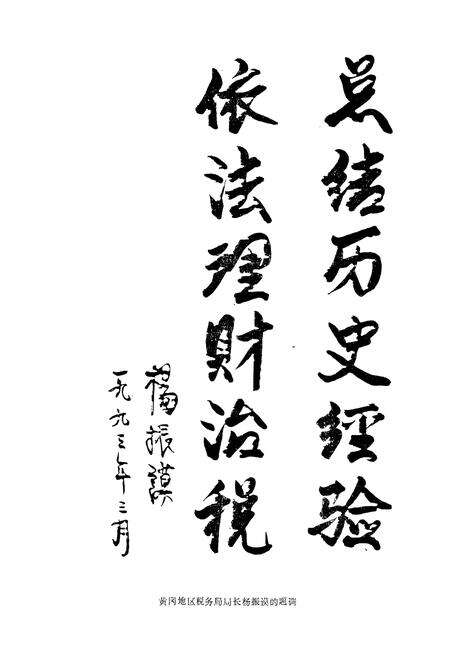 总结历史经验
依法理财治税
杨振谟
一九九三年三月
黄冈地区税务局局长杨振谟的题词